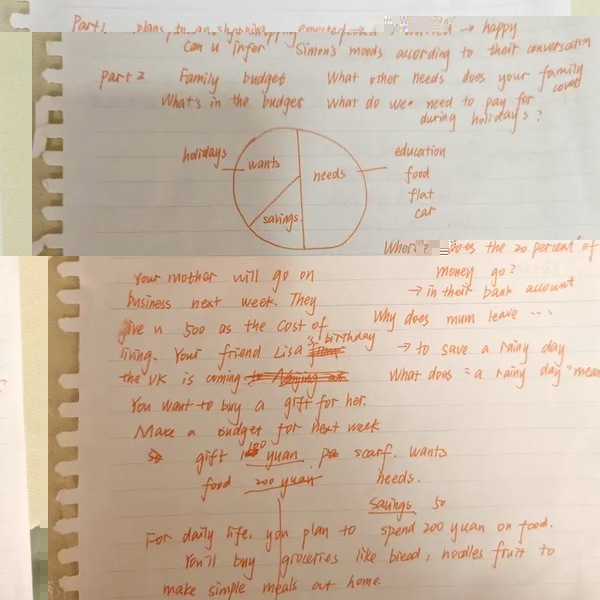 Part1 plans to → happy
Can u infor Simon's moods according to their conversation
part 2 Family budget What other needs does your family cover
What's in the budget What do we need to pay for during holidays?
holidays wants needs education
food
flat
savings. car
does the 20 percent of money go?
→ in their bank account
Your mother will go on
business next week. They
give u 500 as the cost of
living. Your friend Lisa's birthday
the UK is coming
You want to buy a gift for her.
Make a budget for next week
Why does mum leave ...
→ to save a rainy day
What does "a rainy day" mean
gift yuan scarf. wants
food 200 yuan needs.
savings 50
For daily life, you plan to spend 200 yuan on food.
You'll buy groceries like bread, noodles fruit to
make simple meals at home.